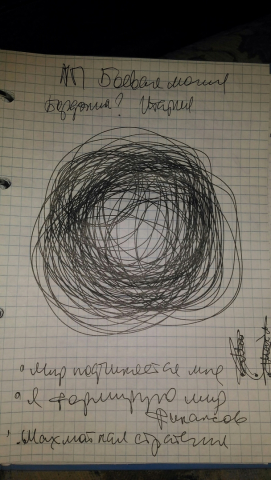 №П Боевая магия
? История
Мир подчиняется мне
Я формирую мир
финансов
Шахматная стратегия